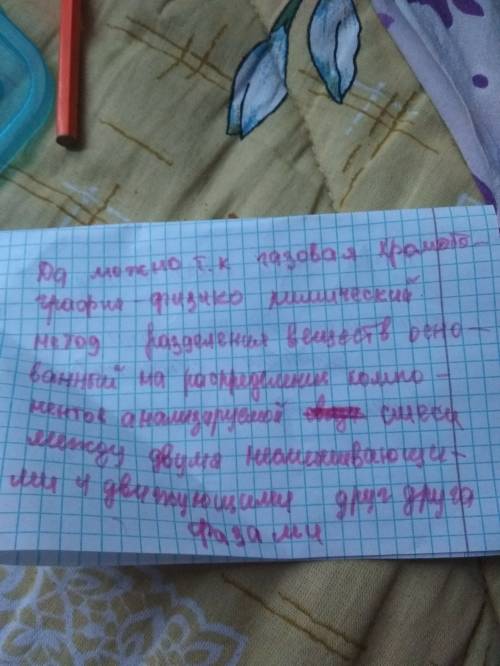 Да можно т.к газовая хромато-
графия физико химический
метод разделения веществ осно-
ванный на распределении компо-
нентов анализируемой смеси
между двумя несмешивающи-
ми и движующими друг друга
фазами